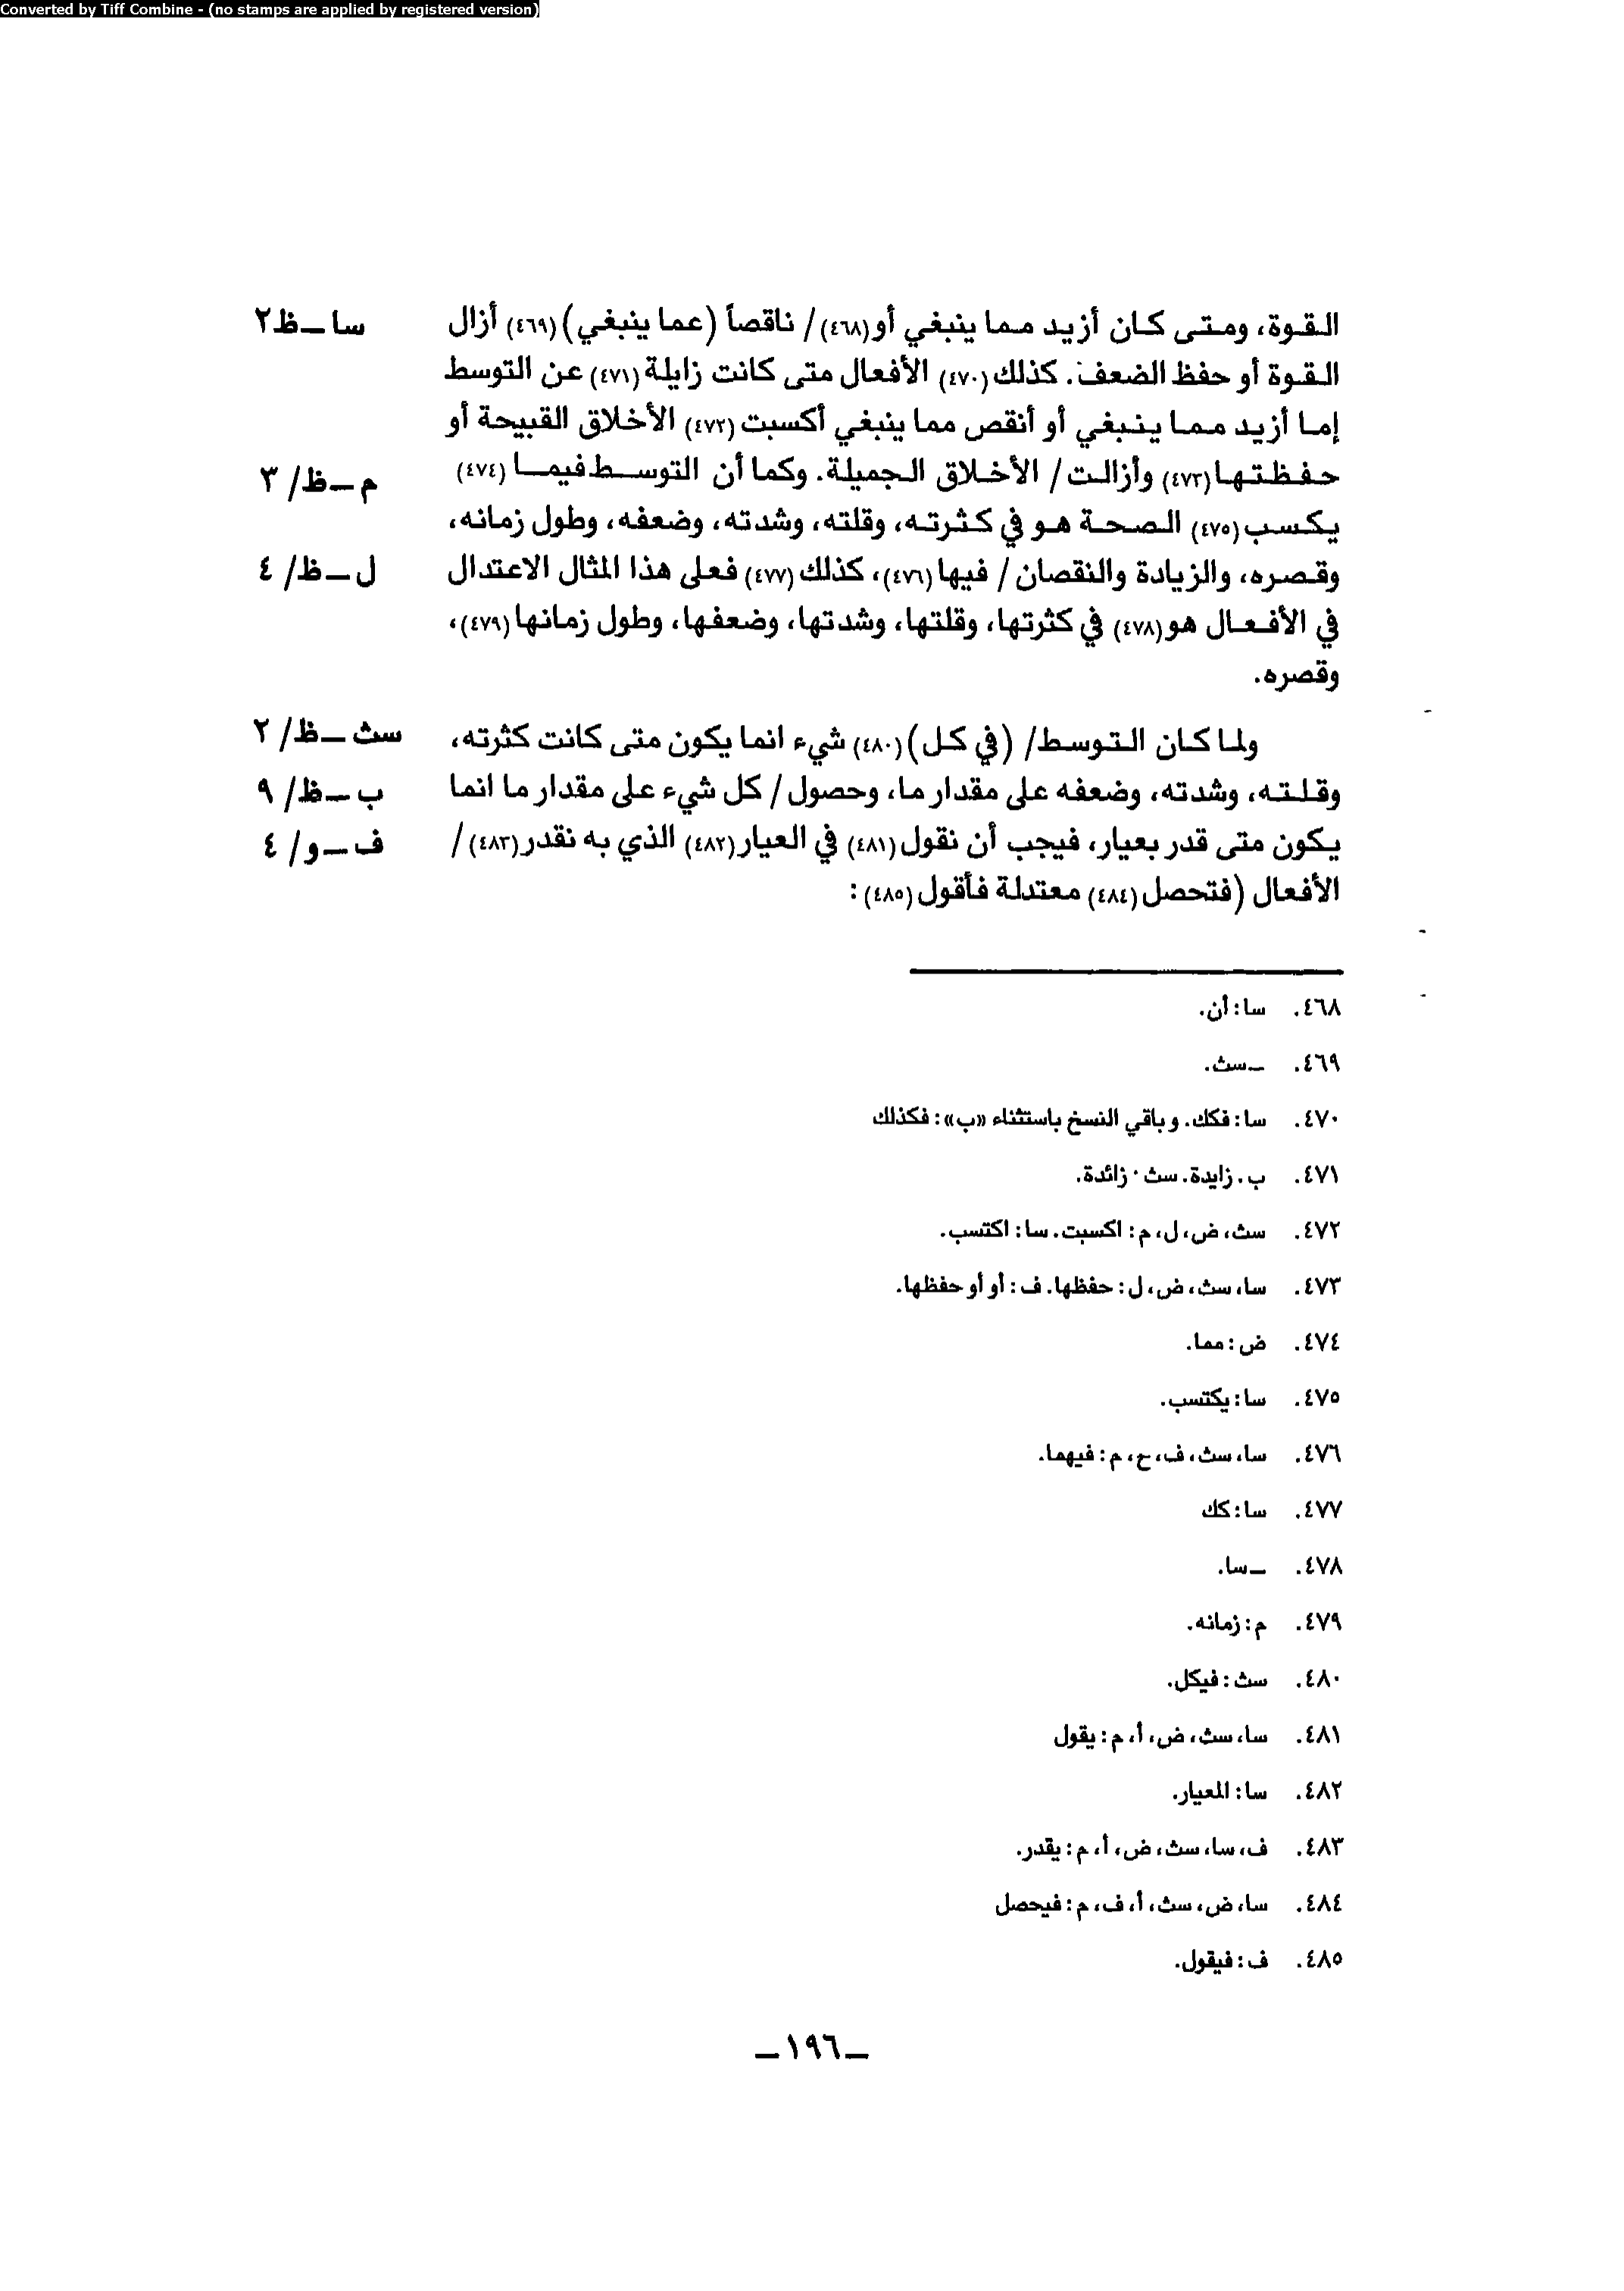 Converted by Tiff Combine - (no stamps are applied by registered version)
القوة، ومتى كان أزيد مما ينبغي أو(٤٦٨)/ ناقصاً (عما ينبغي)(٤٦٩) أزال سا_ظ٢
القوة أو حفظ الضعف. كذلك(٤٧٠) الأفعال متى كانت زايلة(٤٧١) عن التوسط
إما أزيد مما ينبغي أو أنقص مما ينبغي أكسبت(٤٧٢) الأخلاق القبيحة أو
حفظتها(٤٧٣) وأزالت/ الأخلاق الجميلة. وكما أن التوسط فيما(٤٧٤) م_ظ/٣
يكسب(٤٧٥) الصحة هو في كثرته، وقلته، وشدته، وضعفه، وطول زمانه،
وقصره، والزيادة والنقصان/ فيها(٤٧٦)، كذلك(٤٧٧) فعلى هذا المثال الاعتدال ل_ظ/٤
في الأفعال هو(٤٧٨) في كثرتها، وقلتها، وشدتها، وضعفها، وطول زمانها(٤٧٩)،
وقصره.
ولما كان التوسط/ (في كل)(٤٨٠) شيء انما يكون متى كانت كثرته، سث_ظ/٢
وقلته، وشدته، وضعفه على مقدار ما، وحصول/ كل شيء على مقدار ما انما ب_ظ/٩
يكون متى قدر بعيار، فيجب أن نقول(٤٨١) في العيار(٤٨٢) الذي به نقدر(٤٨٣)/ ف_و/٤
الأفعال (فتحصل(٤٨٤) معتدلة فأقول(٤٨٥):
٤٦٨. سا: أن.
٤٦٩. _سث.
٤٧٠. سا: فكك. وباقي النسخ باستثناء «ب»: فكذلك
٤٧١. ب. زايدة. سث· زائدة.
٤٧٢. سث، ض، ل، م: اكسبت. سا: اكتسب.
٤٧٣. سا، سث، ض، ل: حفظها. ف: أو أو حفظها.
٤٧٤. ض: مما.
٤٧٥. سا: يكتسب.
٤٧٦. سا، سث، ف، ح، م: فيهما.
٤٧٧. سا: كك
٤٧٨. _سا.
٤٧٩. م: زمانه.
٤٨٠. سث: فيكل.
٤٨١. سا، سث، ض، أ، م: يقول
٤٨٢. سا: المعيار.
٤٨٣. ف، سا، سث، ض، أ، م: يقدر.
٤٨٤. سا، ض، سث، أ، ف، م: فيحصل
٤٨٥. ف: فيقول.
_١٩٦_